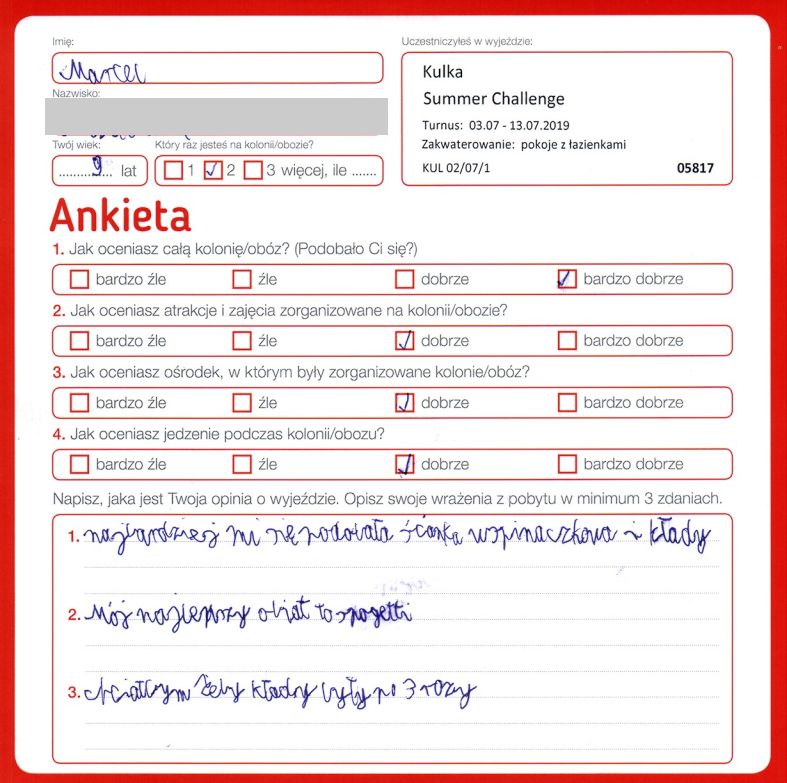 Imię:
Marcel
Nazwisko:
Twój wiek:
9 lat
Który raz jesteś na kolonii/obozie?
1 2 3 więcej, ile .......
Uczestniczyłeś w wyjeździe:
Kulka
Summer Challenge
Turnus: 03.07 - 13.07.2019
Zakwaterowanie: pokoje z łazienkami
KUL 02/07/1 05817
Ankieta
1. Jak oceniasz całą kolonię/obóz? (Podobało Ci się?)
bardzo źle źle dobrze bardzo dobrze
2. Jak oceniasz atrakcje i zajęcia zorganizowane na kolonii/obozie?
bardzo źle źle dobrze bardzo dobrze
3. Jak oceniasz ośrodek, w którym były zorganizowane kolonie/obóz?
bardzo źle źle dobrze bardzo dobrze
4. Jak oceniasz jedzenie podczas kolonii/obozu?
bardzo źle źle dobrze bardzo dobrze
Napisz, jaka jest Twoja opinia o wyjeździe. Opisz swoje wrażenia z pobytu w minimum 3 zdaniach.
1. najbardziej mi się podobała ścanka wspinaczkowa i kłady
2. Mój najlepszy obiat to spagetti
3. chciałbym żeby kłady były po 3 razy